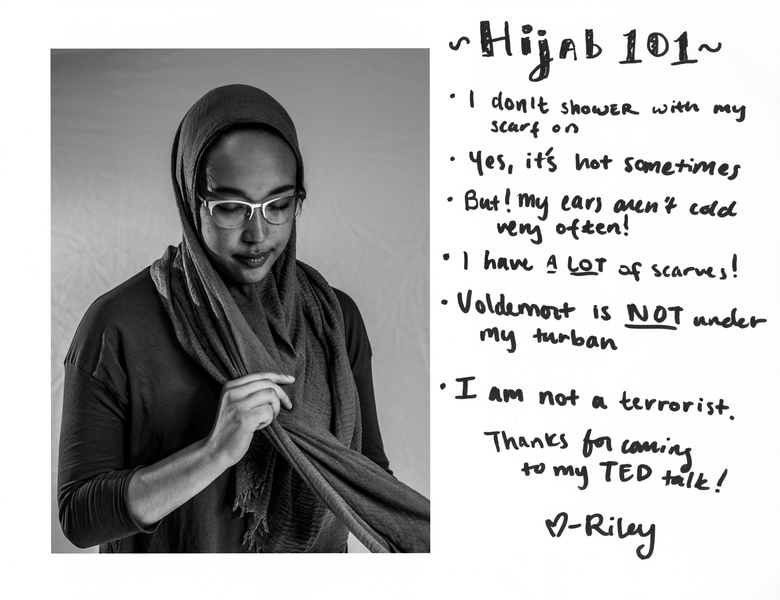 ~Hijab 101~
• I don't shower with my
scarf on
• Yes, it's hot sometimes
• But! my ears aren't cold
very often!
• I have A LOT of scarves!
• Voldemort is NOT under
my turban
• I am not a terrorist.
Thanks for coming
to my TED talk!
♡-Riley